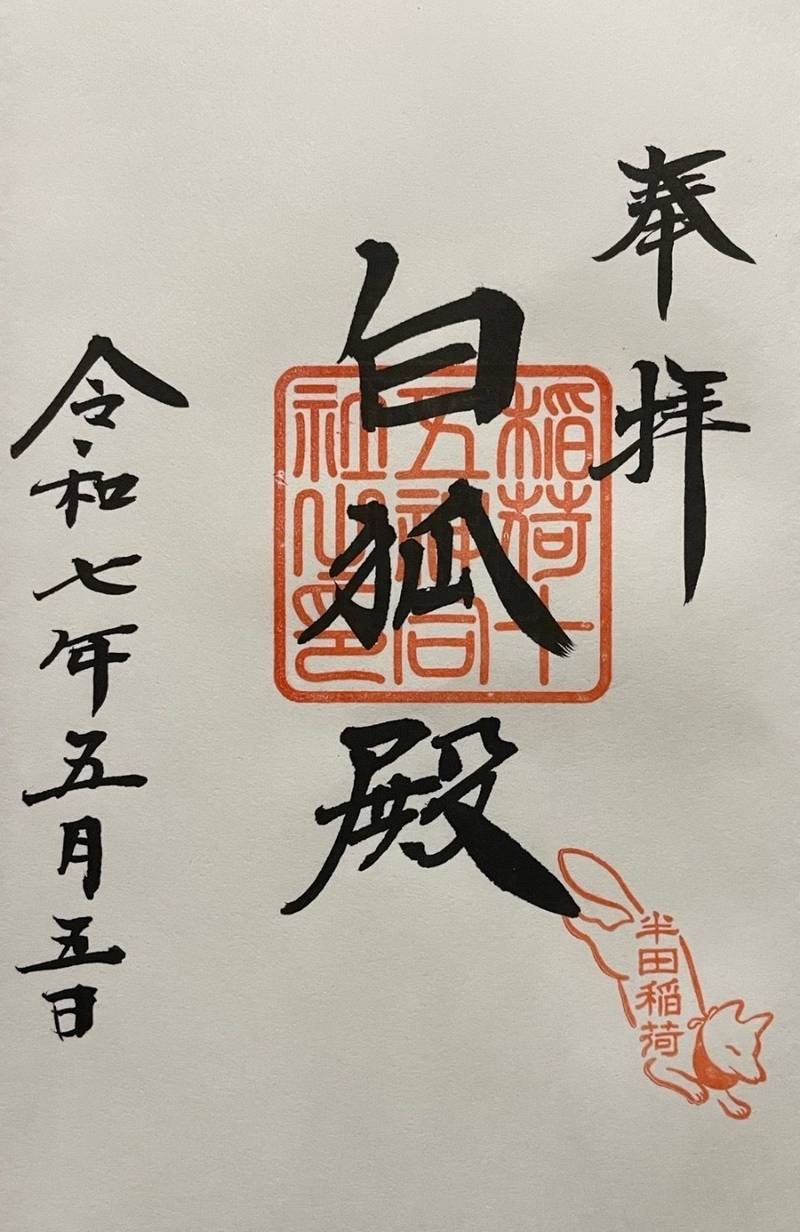 奉拝
白狐殿
稲荷十
五神合
祉之印
半田稲荷
令和七年五月五日